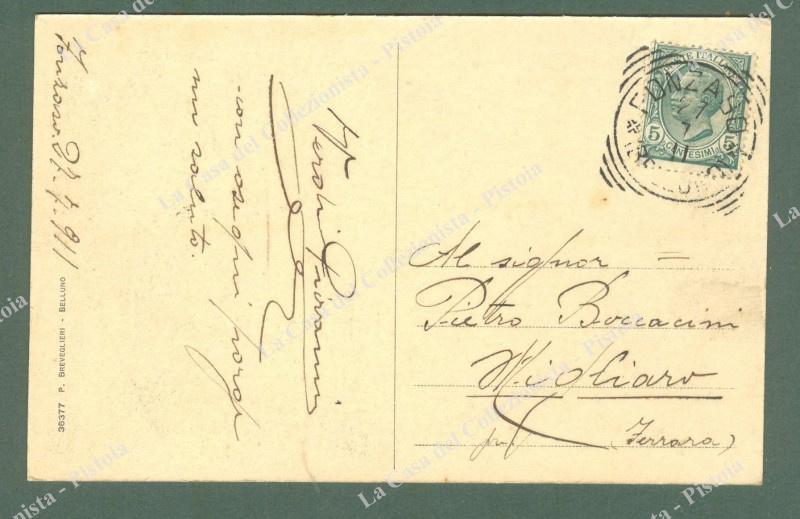 27.7.911
con ossequi porge
un saluto.
36377 P. BREVEGLIERI - BELLUNO
POSTE ITALIANE
5 CENTESIMI 5
FONZASO
27
7
11
Al signor =
Pietro Boccacini
Migliaro
(Ferrara)
La Casa del Collezionista - Pistoia